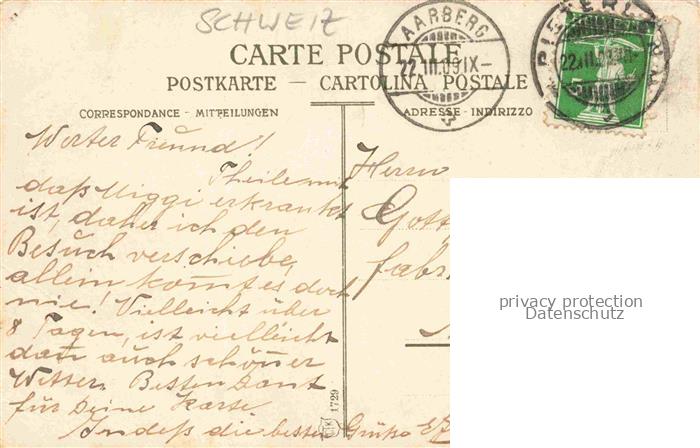 SCHWEIZ
AARBERG
22.III.09 IX-
22.III.09
CARTE POSTALE
POSTKARTE – CARTOLINA POSTALE
CORRESPONDANCE - MITTEILUNGEN
ADRESSE - INDIRIZZO
Werter Freund!
Theile mit
daß Miggi erkrankt
ist, daher ich den
Besuch verschiebe,
allein komt es doch
nie! Vielleicht über
8 Tagen, ist vielleicht
dan auch schöner
Wetter. Besten Dank
für Deine Karte
Indeß die besten Grüße
Herrn
Gott
fabr
1729
privacy protection
Datenschutz